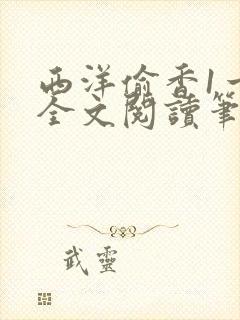 西洋偷香1一
全文閱讀筆
武靈